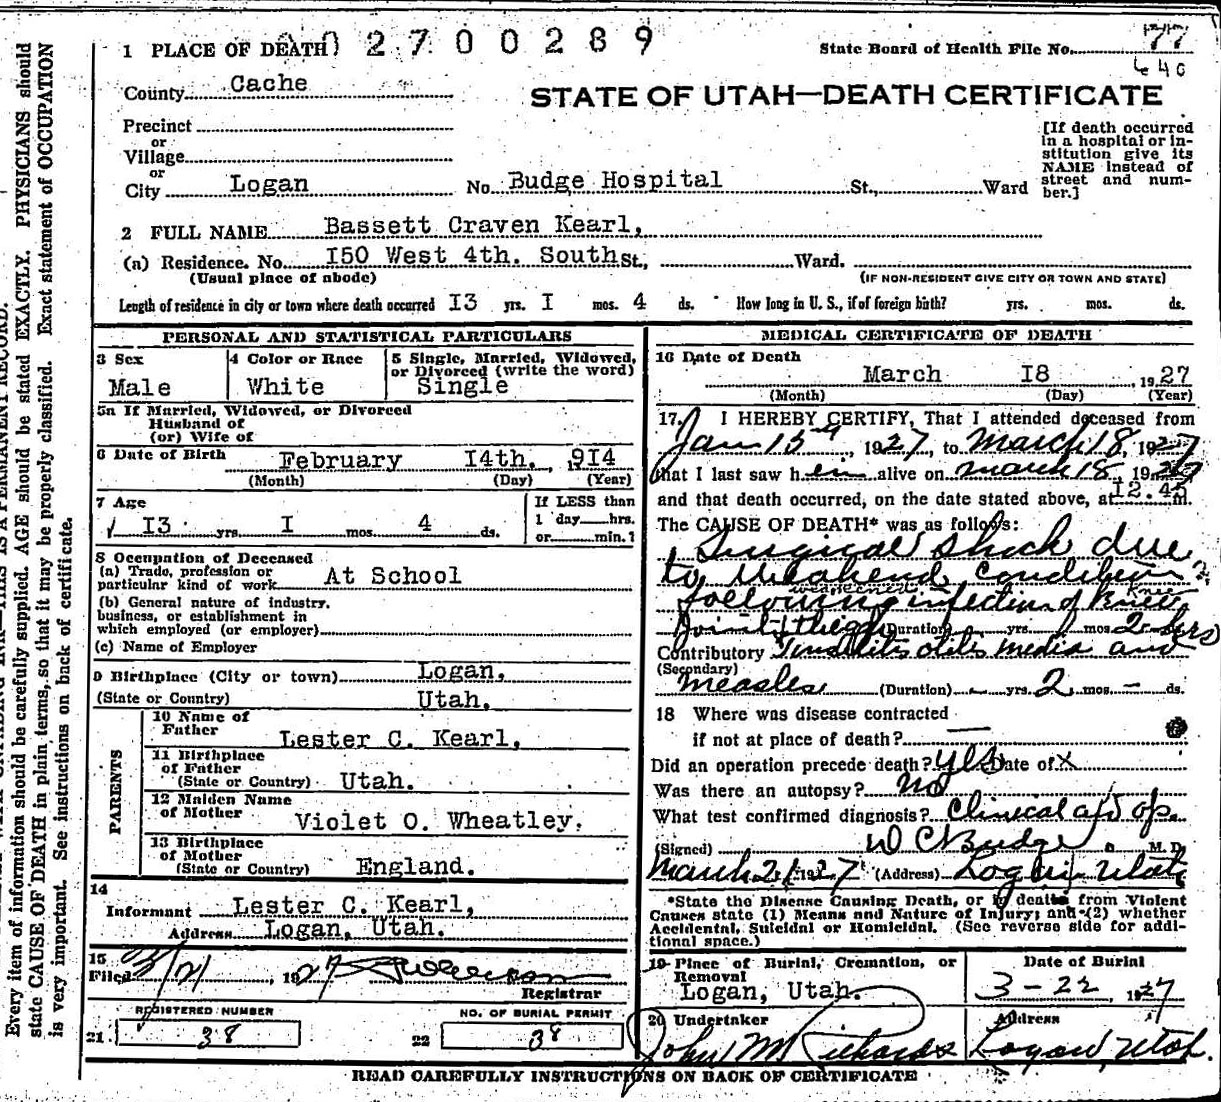 2700289
1 PLACE OF DEATH
State Board of Health File No. 77
440
County Cache
STATE OF UTAH—DEATH CERTIFICATE
Precinct
or
Village
or
City Logan No. Budge Hospital St., Ward
[If death occurred
in a hospital or in-
stitution give its
NAME instead of
street and num-
ber.]
2 FULL NAME Bassett Craven Kearl,
(a) Residence. No. I50 West 4th. South St., Ward.
(Usual place of abode) (IF NON-RESIDENT GIVE CITY OR TOWN AND STATE)
Length of residence in city or town where death occurred I3 yrs. I mos. 4 ds. How long in U. S., if of foreign birth? yrs. mos. ds.
PERSONAL AND STATISTICAL PARTICULARS
3 Sex
Male
4 Color or Race
White
5 Single, Married, Widowed,
or Divorced (write the word)
Single
5a If Married, Widowed, or Divorced
Husband of
(or) Wife of
6 Date of Birth February I4th. , 914
(Month) (Day) (Year)
7 Age
I3 yrs. I mos. 4 ds.
If LESS than
1 day hrs.
or min.?
8 Occupation of Deceased
(a) Trade, profession or
particular kind of work At School
(b) General nature of industry,
business, or establishment in
which employed (or employer)
(c) Name of Employer
9 Birthplace (City or town) Logan,
(State or Country) Utah.
PARENTS
10 Name of
Father Lester C. Kearl,
11 Birthplace
of Father
(State or Country) Utah.
12 Maiden Name
of Mother Violet O. Wheatley.
13 Birthplace
of Mother
(State or Country) England.
14
Informant Lester C. Kearl,
Address Logan, Utah.
15
Filed 3/21, 1927
Registrar
REGISTERED NUMBER
21. 38
NO. OF BURIAL PERMIT
22 38
MEDICAL CERTIFICATE OF DEATH
16 Date of Death
March I8 , 1927
(Month) (Day) (Year)
17. I HEREBY CERTIFY, That I attended deceased from
Jan 15th, 1927, to March 18, 1927
that I last saw him alive on March 18, 1927
and that death occurred, on the date stated above, at 12.45 m.
The CAUSE OF DEATH* was as follows:
Surgical Shock due
to weakend condition
weakened Knee
following infection of Knee
Joint & thigh (Duration) yrs. mos. 2 hrs)
Contributory Tonsilitis otitis media and
(Secondary)
Measles (Duration) - yrs. 2 mos. - ds.
18 Where was disease contracted
if not at place of death? —
Did an operation precede death? yes Date of x
Was there an autopsy? No
What test confirmed diagnosis? Clinical and op.
(Signed) D C Budge M. D.
March 21, 1927 (Address) Logan Utah
*State the Disease Causing Death, or in deaths from Violent
Causes state (1) Means and Nature of Injury; and (2) whether
Accidental, Suicidal or Homicidal. (See reverse side for addi-
tional space.)
19 Place of Burial, Cremation, or
Removal
Logan, Utah.
Date of Burial
3-22, 1927
20 Undertaker
John M Richards
Address
Logan, Utah.
READ CAREFULLY INSTRUCTIONS ON BACK OF CERTIFICATE
THIS IS A PERMANENT RECORD.
Every item of information should be carefully supplied. AGE should be stated EXACTLY. PHYSICIANS should
state CAUSE OF DEATH in plain terms, so that it may be properly classified. Exact statement of OCCUPATION
is very important. See instructions on back of certificate.